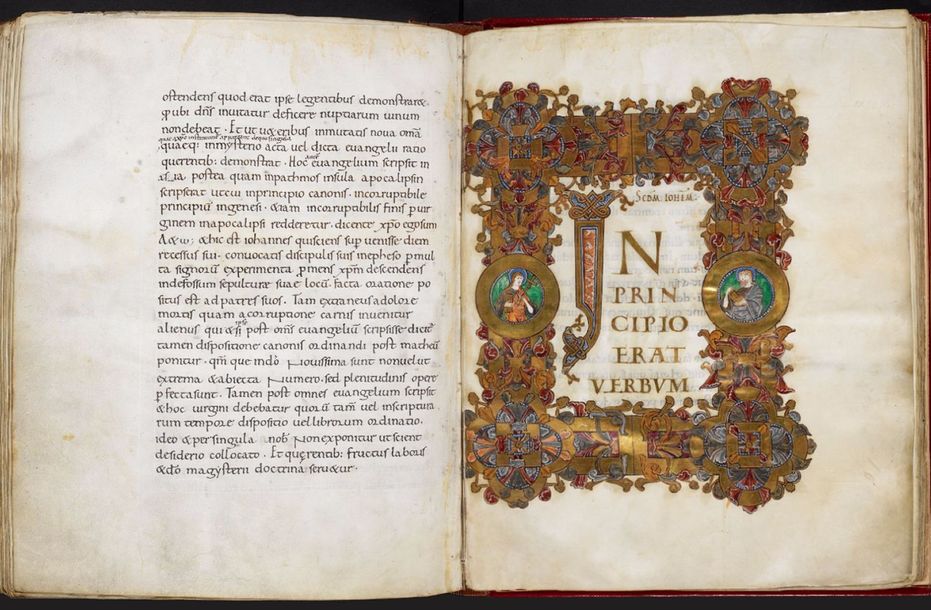 ostendens quod erat ipse legentibus demonstraret
& ubi dn̄s inuitatur deficere nuptiarum uinum
nondebeat · Et ut ueteribus inmutatis noua om̄a
quaeq: inxp̄o instituuntur appareant
inmysterio acta uel dicta euangelii ratio
querentib: demonstrat · Hoc euangelium scripsit in
asia postea quam inpathmos insula apocalipsin
scripserat ut cui inprincipio canonis · incorruptibile
principiū ingenesi · &iam incorruptibilis finis p uir
ginem inapocalipsi redderetur · dicente xp̄o egosum
A&ω; &hic est iohannes qui sciens sup uenisse diem
recessus sui · conuocatis discipulis suis inepheso p mul
ta signorū experimenta promens xp̄m descendens
indefossum sepulturae suae locū facta oratione po
situs est ad patres suos · Tam extraneus adolore
mortis quam acorruptione carnis inuenitur
alienus qui &si post om̄s euangeliū scripsisse dicit
tamen dispositione canonis ordinandi post matheū
ponitur · qm̄ que indn̄o Nouissima sunt nonuelut
extrema &abiecta Numero · sed plenitudinis opere
p fecta sunt · Tamen post omnes euangelium scripsit
&hoc uirgini debebatur quorū tam̄ uel inscriptura
rum tempore dispositio uel librorum ordinatio ·
ideo & per singula nob̄ Non exponitur ut scient
desiderio collocato · Et querentib: fructus laboris
&dō magysterii doctrina seruetur ·
SCDM · IOHEM ·
IN
PRIN
CIPIO
ERAT
VERBVM